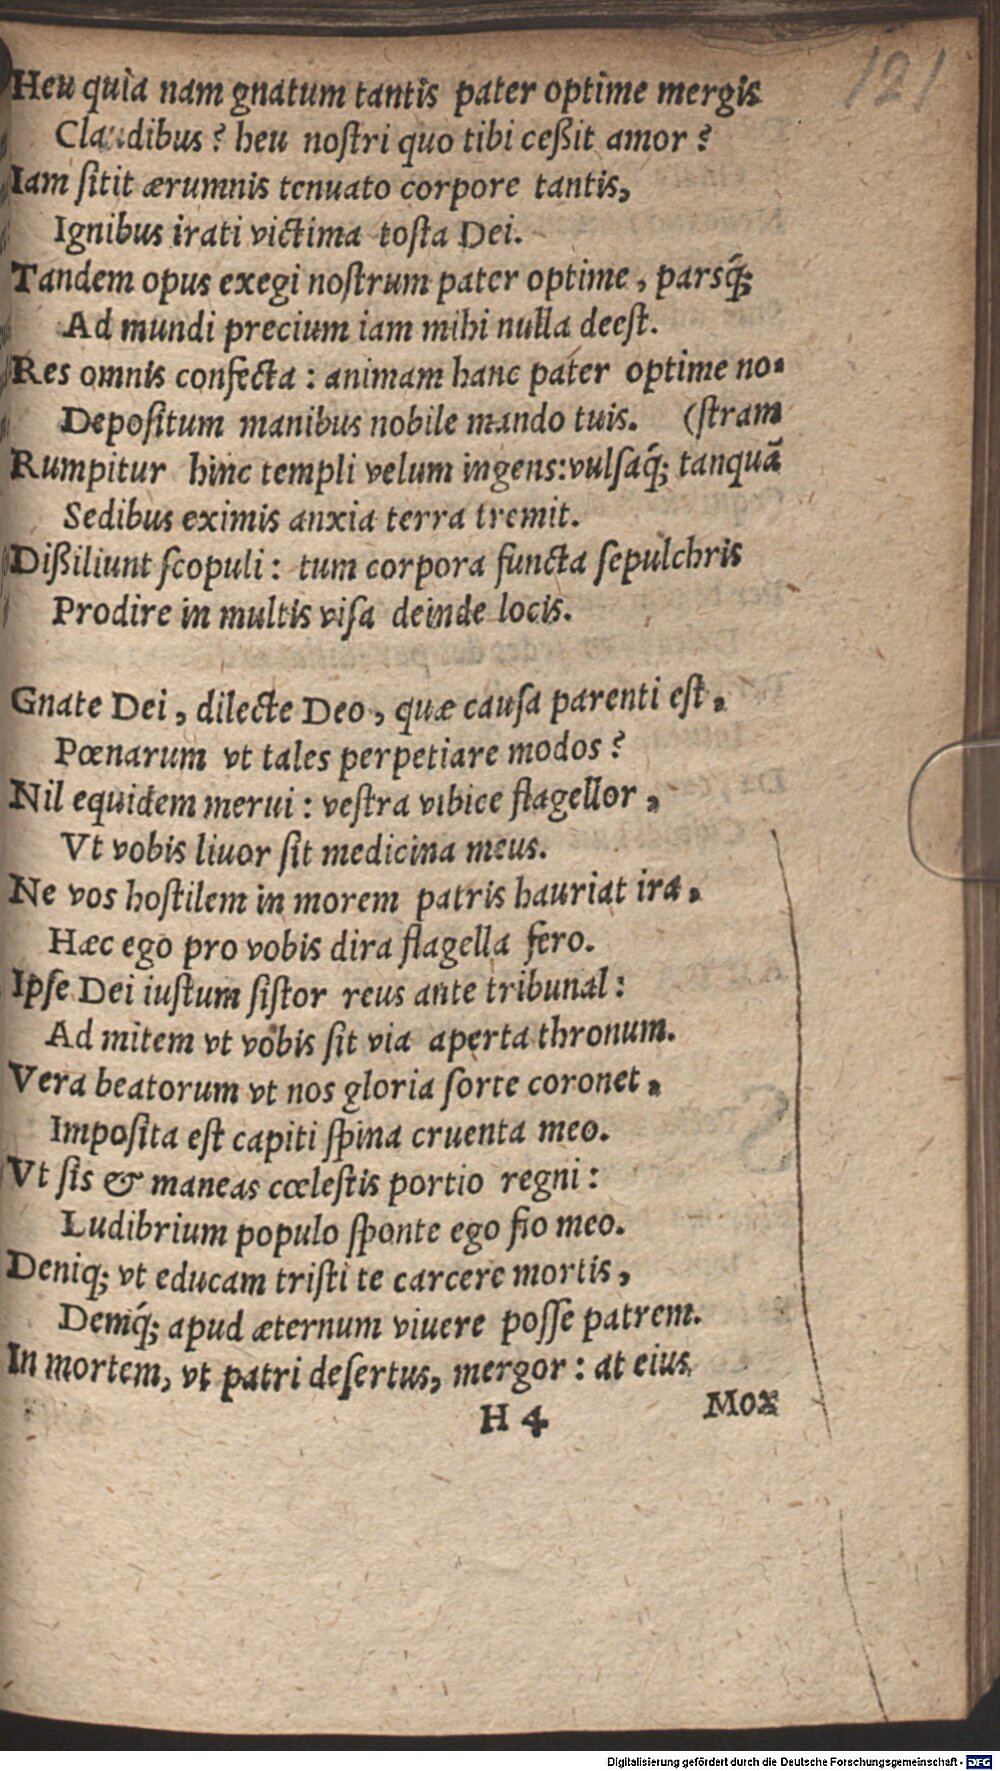 121
Heu quia nam gnatum tantis pater optime mergis
Claudibus? heu nostri quo tibi ceßit amor?
Iam sitit ærumnis tenuato corpore tantis,
Ignibus irati victima tosta Dei.
Tandem opus exegi nostrum pater optime, parsq́;
Ad mundi precium iam mihi nulla deest.
Res omnis confecta: animam hanc pater optime no-
Depositum manibus nobile mando tuis. (stram
Rumpitur hinc templi velum ingens: vulsaq́; tanquã
Sedibus eximis anxia terra tremit.
Dißiliunt scopuli: tum corpora functa sepulchris
Prodire in multis visa deinde locis.
Gnate Dei, dilecte Deo, quæ causa parenti est,
Pœnarum vt tales perpetiare modos?
Nil equidem merui: vestra vibice flagellor,
Vt vobis liuor sit medicina meus.
Ne vos hostilem in morem patris hauriat ira,
Hæc ego pro vobis dira flagella fero.
Ipse Dei iustum sistor reus ante tribunal:
Ad mitem vt vobis sit via aperta thronum.
Vera beatorum vt nos gloria sorte coronet,
Imposita est capiti spina cruenta meo.
Vt sis & maneas cœlestis portio regni:
Ludibrium populo sponte ego fio meo.
Deniq; vt educam tristi te carcere mortis,
Demq́; apud æternum viuere posse patrem.
In mortem, vt patri desertus, mergor: at eius
H 4 Mox
Digitalisierung gefördert durch die Deutsche Forschungsgemeinschaft - DFG